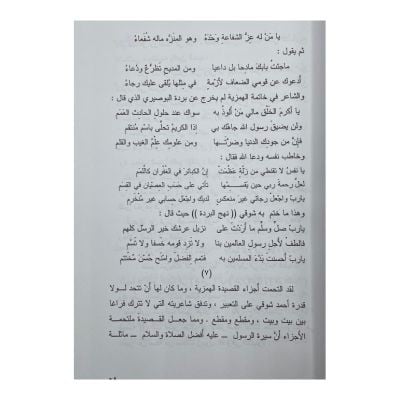 يا مَنْ له عِزُّ الشفاعةِ وَحْدَه وهو المنَزَّه ماله شُفَعاءُ
ثم يقول :
ماجئتُ بابك مادِحا بل داعيا ومن المديح تَضرُّعٌ ودُعاءُ
أدعوك عن قومي الضعافِ لأزمةٍ في مِثلها يُلقى عليك رجاءُ
والشاعر في خاتمة الهمزية لم يخرج عن بردة البوصيري الذي قال :
يا أكرمَ الخَلْق مالي مَنْ ألوذُ به سواك عند حلول الحادث العَمَم
ولن يضيقَ رسول الله جاهُك بي إذا الكريمُ تحلَّى باسم مُنتقم
فإنَّ من جودك الدنيا وضرَّتَها ومن علومك عِلْمُ الغيب والقلم
وخاطب نفسه ودعا الله فقال :
يا نفسُ لا تقنطي من زلّةٍ عظُمَتْ إنَّ الكبائر في الغُفران كاللَّمَم
لعلَّ رحمةَ ربي حين يَقسمُها تأتي على حَسَب العِصيان في القِسَم
ياربّ واجعل رجائي غيرَ منعكس لديك واجعَل حسابي غير مُنْخَرم
وهذا ما ختم به شوقي (( نهج البردة )) حيث قال :
ياربّ صلِّ وسلِّم ما أردْتَ على نزيل عرشك خيرِ الرسل كلِّهم
فالطُفْ لأجلِ رسولِ العالمين بنا ولا تزد قومه خَسفا ولا تَسُم
ياربّ أحسنتَ بَدْءَ المسلمين به فتمم الفضلَ وامنَح حُسْنَ مُختتَم
(٧)
لقد التحمت أجزاء القصيدة الهمزية ، وما كان لها أنْ تتحد لولا
قدرة أحمد شوقي على التعبير ، وتدفق شاعريته التي لا تترك فراغا
بين بيت وبيت ، ومقطع ومقطع . ومما جعل القصيدة ملتحمة
الأجزاء أنَّ سيرة الرسول ــ عليه أفضل الصلاة والسلام ــ ماثلة